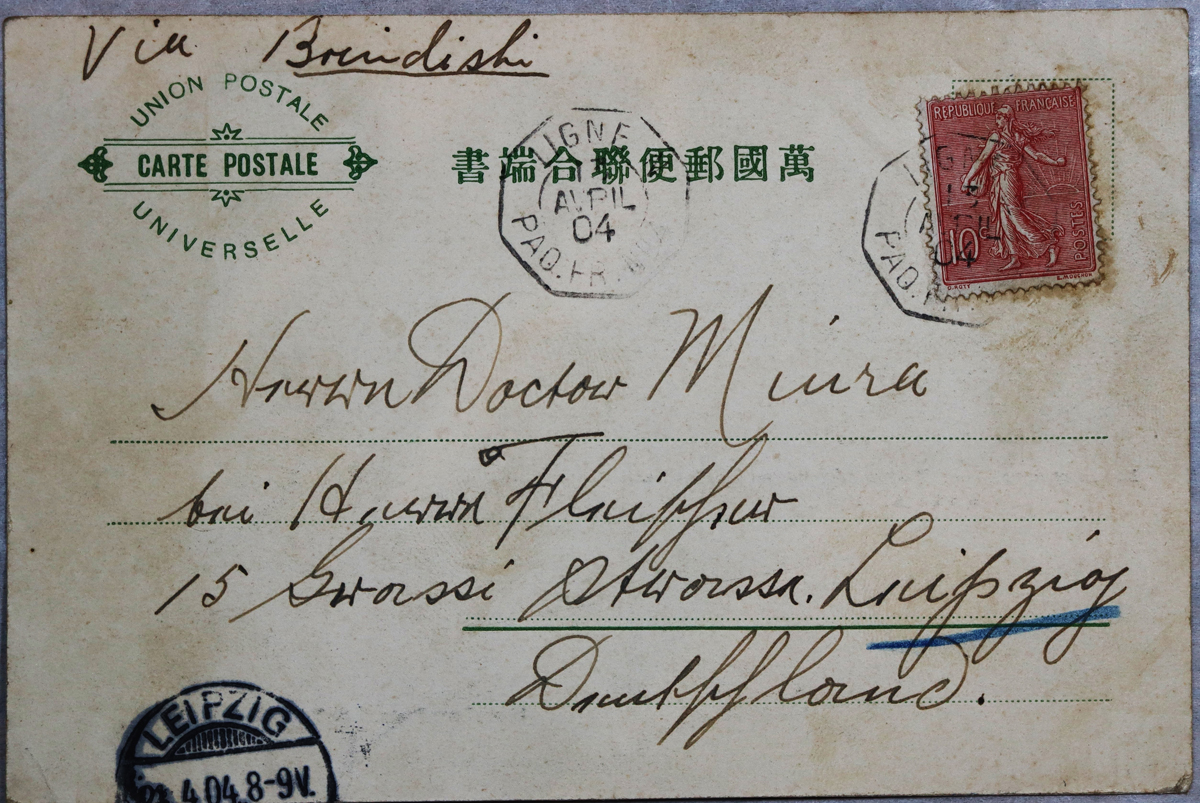 Via Brindishi
UNION POSTALE
CARTE POSTALE
UNIVERSELLE
書端合聯便郵國萬
LIGNE
AVRIL
04
PAQ. FR.
REPUBLIQUE FRANÇAISE
10c
POSTES
O. ROTY
E. MOUCHON
LIGNE
04
PAQ. FR.
Herrn Doctor Miura
bei Herrn Fleischer
15 Grassi Strasse. Leipzig
Deutschland.
LEIPZIG
4.04.8-9V.